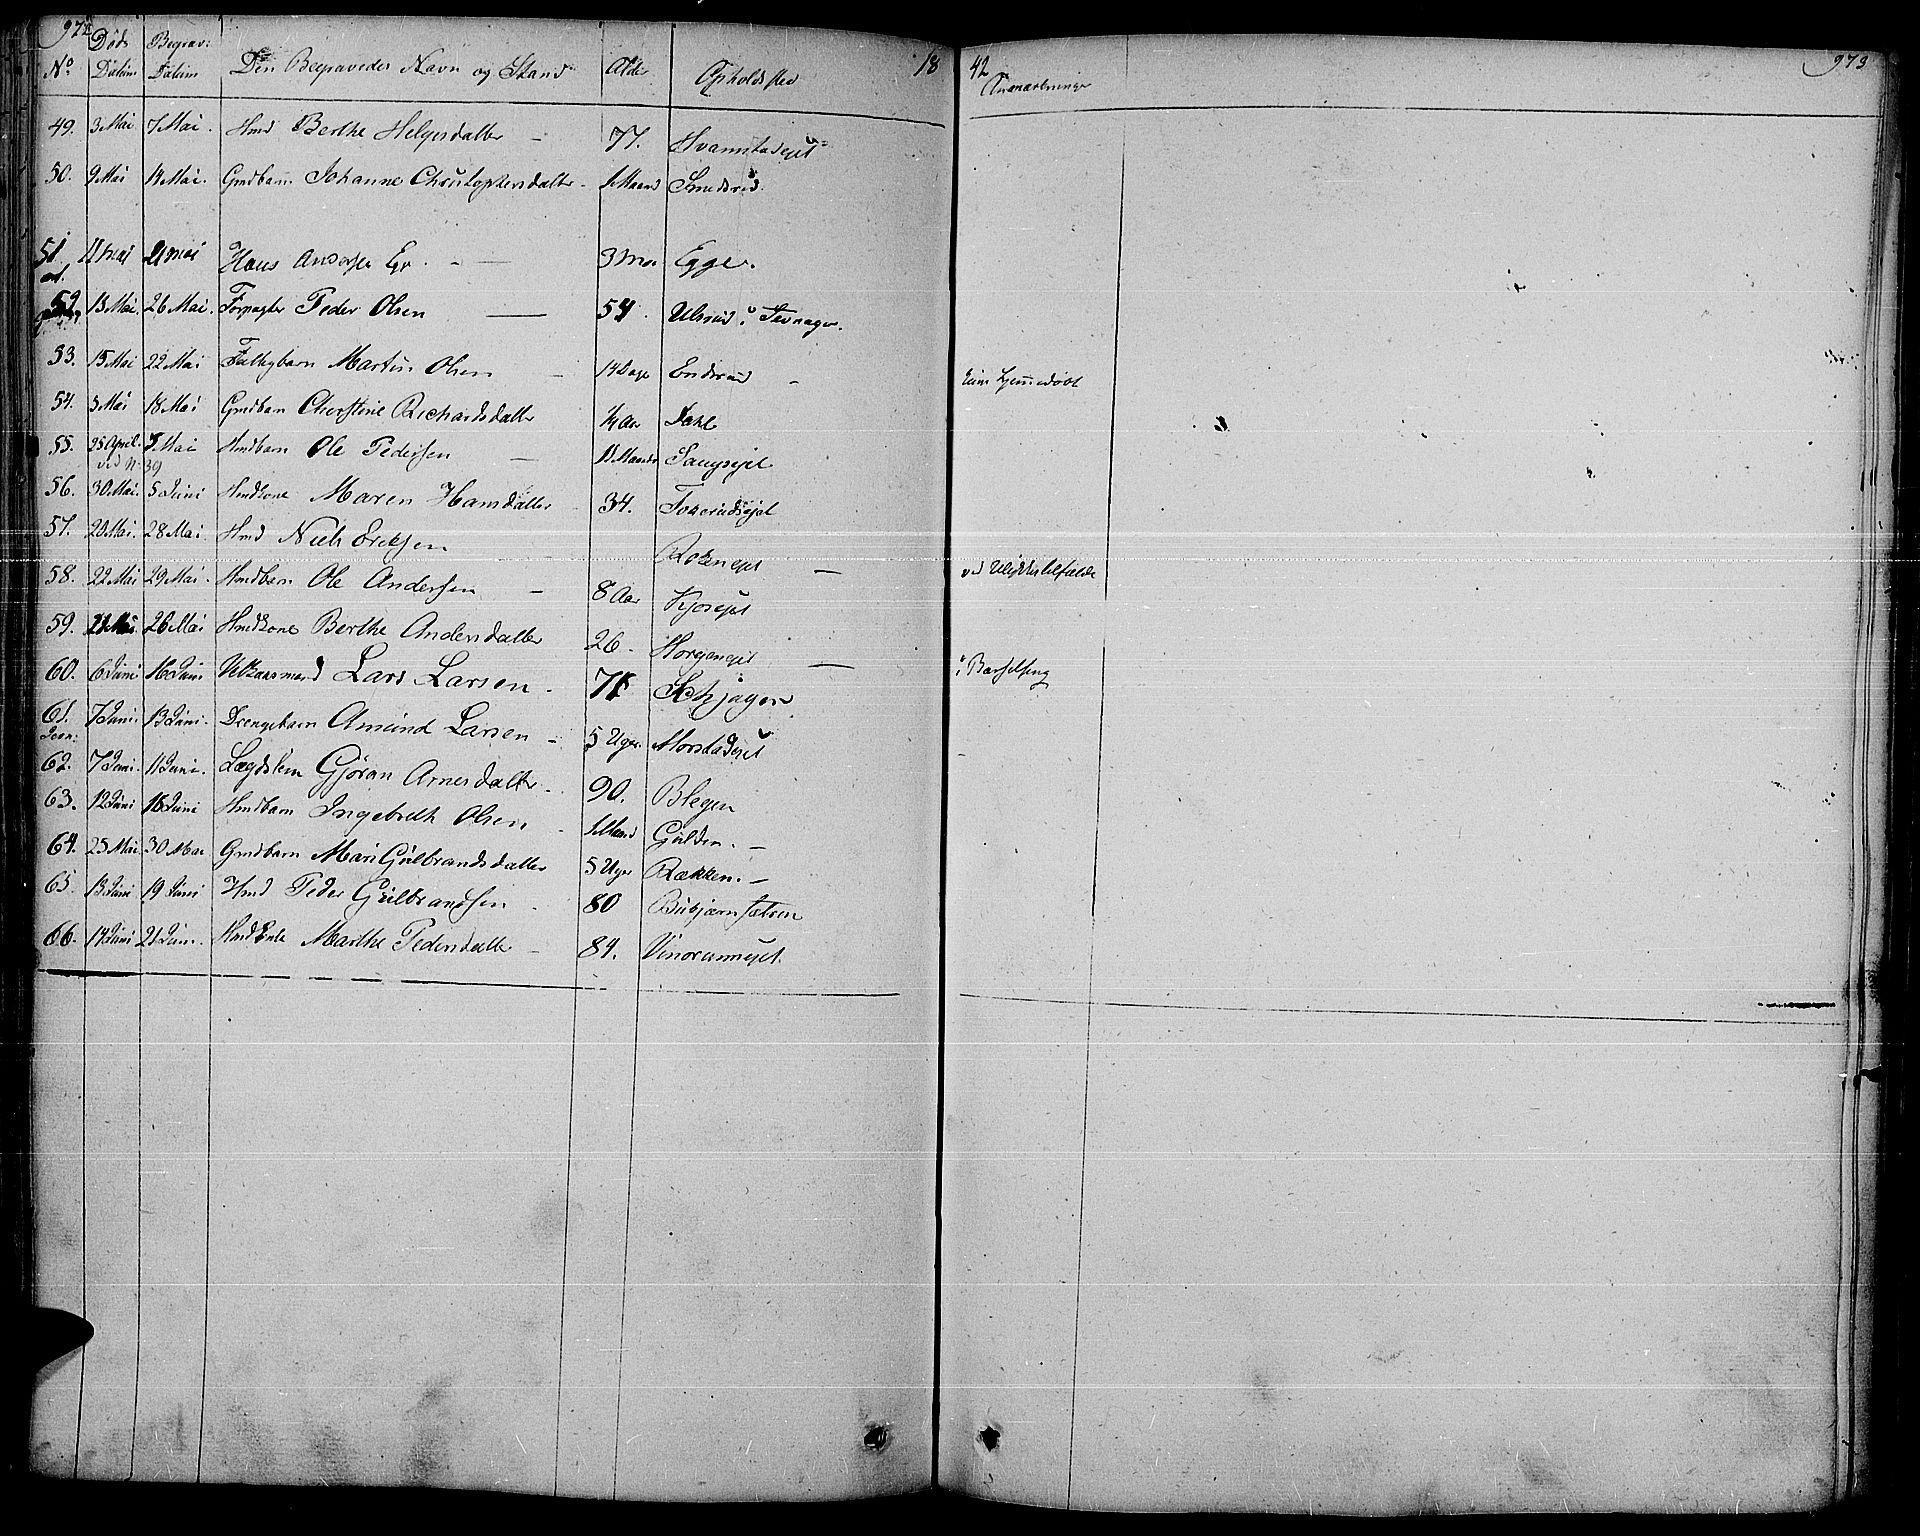 972 Døds Begrav: 18 42 973
No Datum Datum Den Begravedes Navn og Stand Alder Opholdsted Anmærkninger
49. 3 Mai 7 Mai. Hmd Berthe Helgesdatter 77.
50. 9 Mai 14 Mai. Gmdbarn Johanne Christophersdatter 1 Maaned Smedsrud
51 11 mai 21 mai Hans Egge.
52 13 Mai. 26 Mai. Forpagter Peder Olsen 54. Ulsrud i
53. 15 Mai 22 Mai Martin Olsen 14 Dage Endsrud hjemmedøbt
54. 5 Mai 18 Mai Gmdbarn Christine Richardsdatter ½ Aar Dahl
55. 25 April. 7 Mai Hmdbarn Ole Pedersen
ved N. 39
56. 30 Mai. 5 Juni Hmdkone Maren Hansdatter 34.
57. 20 Mai. 28 Mai. Hmd Niels Eriksen Rokeneget
58. 22 Mai 29 Mai. Hmdbarn Ole Andersen 8 Aar ved Ulykkestilfælde
59. 26 Mai Hmdkone Berthe Andersdatter 26.
60. 6 Juni 16 Juni Lars Larsen. i Barselseng
61. 7 Juni. 13 Juni. Drengebarn Amund Larsen 5 Uger. Morstadeget
62. 7 Juni. 11 Juni. Lægdslem Gjøran Arnesdatter. 90. Blegen
63. 12 Juni 18 Juni Hmdbarn Ingebreth Olsen 1 Maaned Gulden.
64. 25 Mai 30 Mai Gmdbarn Mari Gulbrandsdatter 5 Uger Rækken.
65. 13 Juni 19 Juni Hmd Peder Gulbrandsen 80
66. 14 Juni 21 Juni. Hmd Enke Marthe Pedersdatter 84.